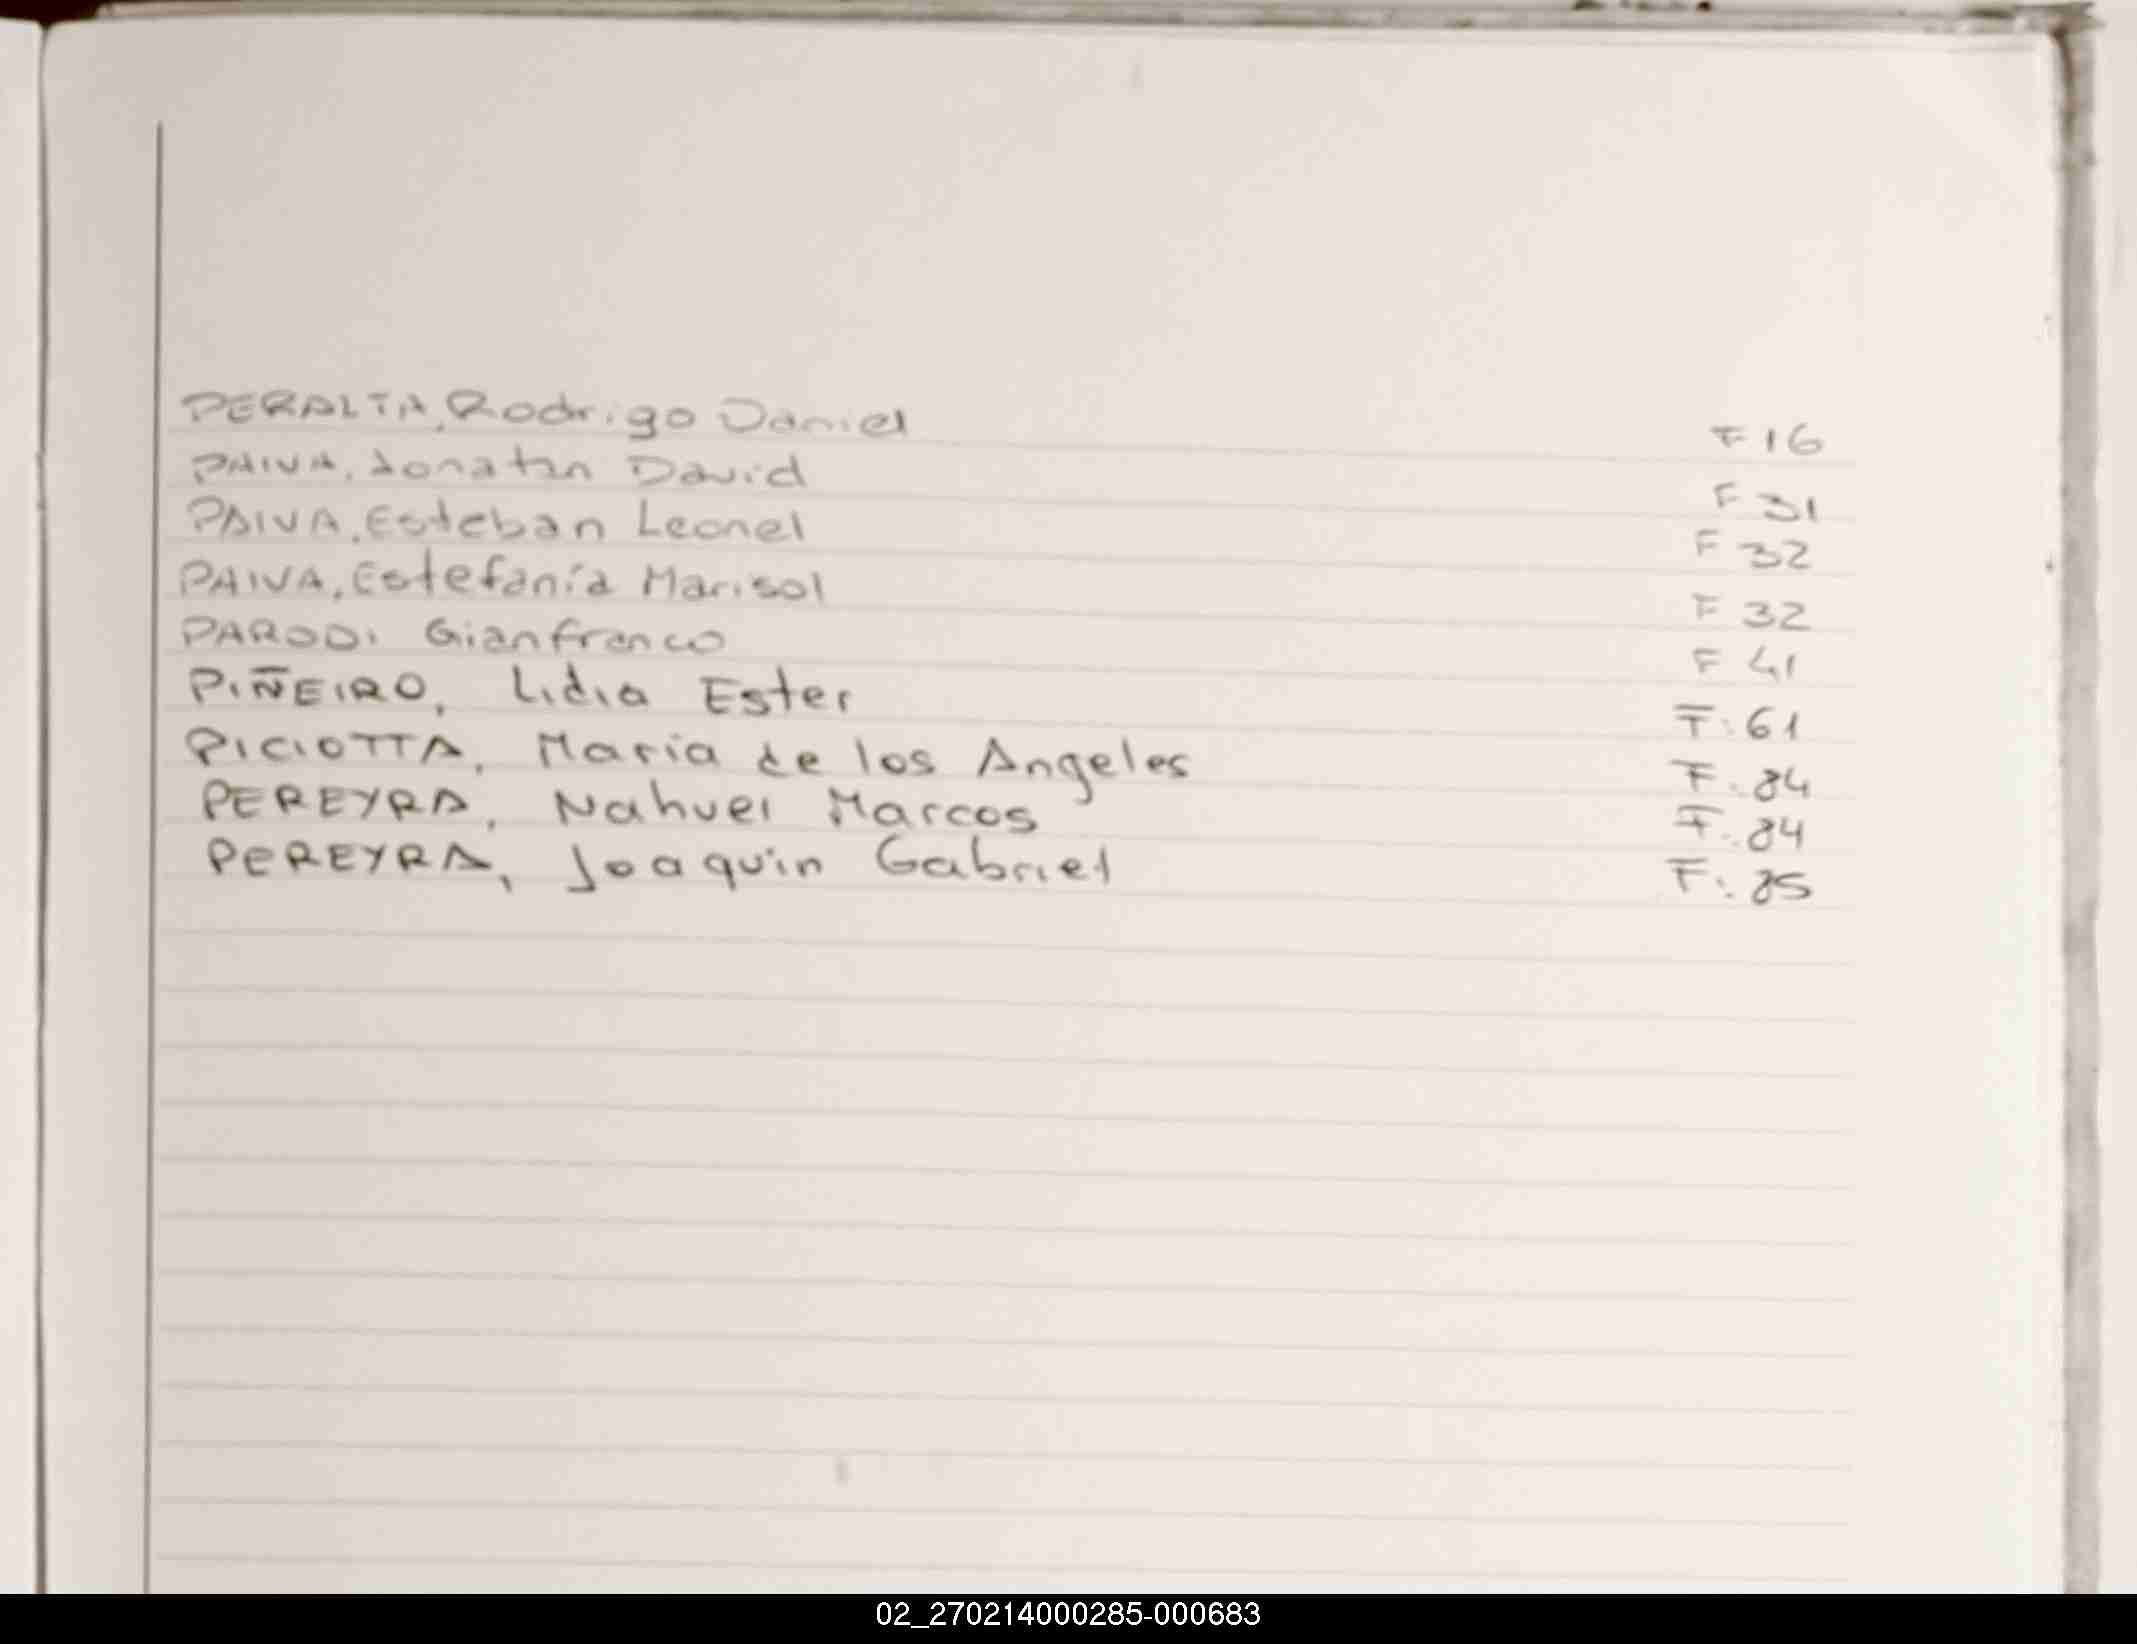 PERALTA, Rodrigo Daniel F 16
PAIVA, Jonatan David F 31
PAIVA, Esteban Leonel F 32
PAIVA, Estefanía Marisol F 32
PARODi Gianfranco F 41
PIÑEIRO, Lidia Ester F: 61
PICIOTTA, María de los Angeles F: 84
PEREYRA, Nahuel Marcos F: 84
PEREYRA, Joaquín Gabriel F: 85
02_270214000285-000683